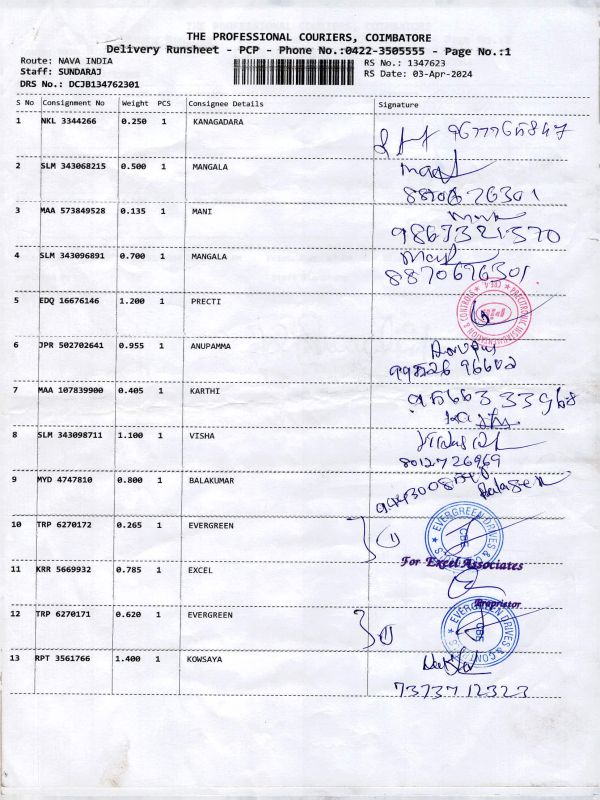 THE PROFESSIONAL COURIERS, COIMBATORE
Delivery Runsheet - PCP - Phone No.:0422-3505555 - Page No.:1
Route: NAVA INDIA RS No.: 1347623
Staff: SUNDARAJ RS Date: 03-Apr-2024
DRS No.: DCJB134762301
S No Consignment No Weight PCS Consignee Details Signature
1 NKL 3344266 0.250 1 KANAGADARA
2 SLM 343068215 0.500 1 MANGALA
3 MAA 573849528 0.135 1 MANI
9869321570
4 SLM 343096891 0.700 1 MANGALA
8870676301
5 EDQ 16676146 1.200 1 PRECTI
6 JPR 502702641 0.955 1 ANUPAMMA
7 MAA 107839900 0.405 1 KARTHI
8 SLM 343098711 1.100 1 VISHA
8012726969
9 MYD 4747810 0.800 1 BALAKUMAR
10 TRP 6270172 0.265 1 EVERGREEN
EVERGREEN DRIVES & CONTROLS
CBS
For Excel Associates
11 KRR 5669932 0.785 1 EXCEL
Proprietor
12 TRP 6270171 0.620 1 EVERGREEN
EVERGREEN DRIVES & CONTROLS
CBS
13 RPT 3561766 1.400 1 KOWSAYA
7373712323